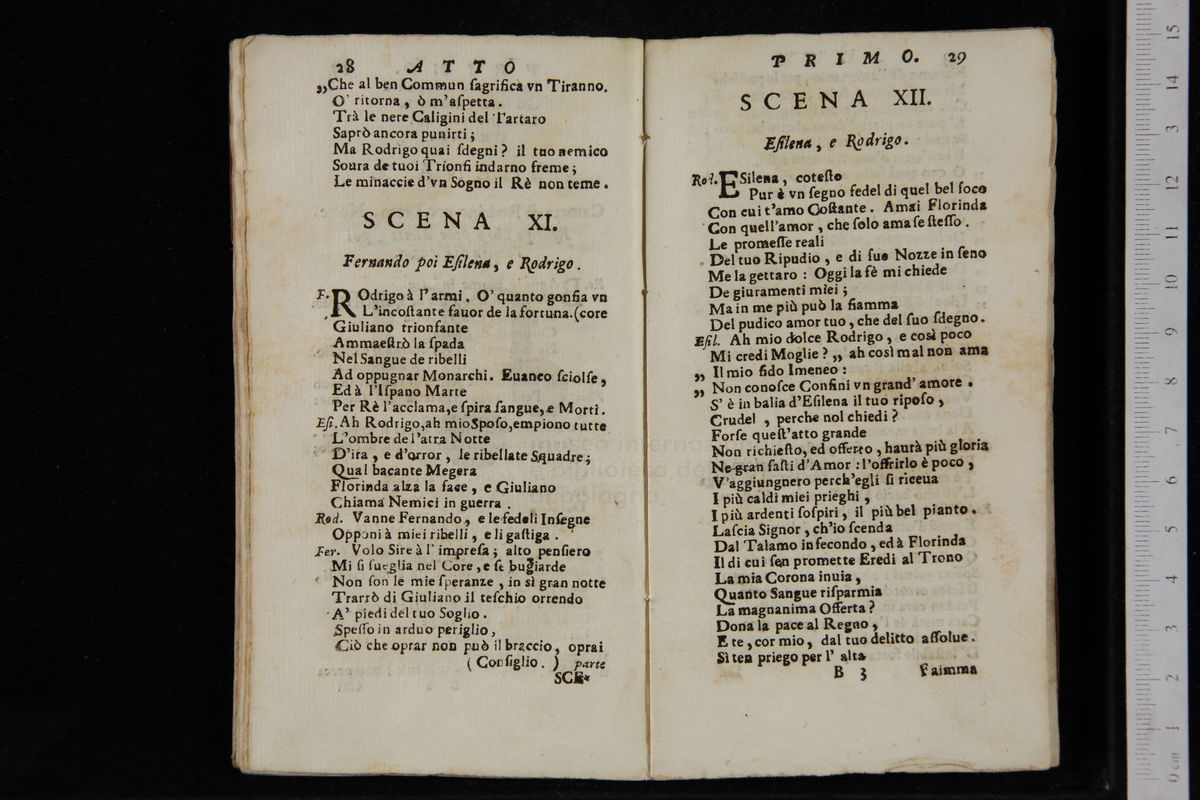 28 ATTO
„Che al ben Commun ſagrifica vn Tiranno.
O' ritorna, ò m'aſpetta.
Trà le nere Caligini del Tartaro
Saprò ancora punirti;
Ma Rodrigo quai ſdegni? il tuo nemico
Soura de tuoi Trionfi indarno freme;
Le minaccie d'vn Sogno il Rè non teme.
SCENA XI.
Fernando poi Eſilena, e Rodrigo.
F. ROdrigo à l'armi. O' quanto gonfia vn
L'incoſtante fauor de la fortuna. (core
Giuliano trionfante
Ammaeſtrò la ſpada
Nel Sangue de ribelli
Ad oppugnar Monarchi. Euanco ſciolſe,
Ed à l'Iſpano Marte
Per Rè l'acclama, e ſpira ſangue, e Morti.
Eſi. Ah Rodrigo, ah mio Spoſo, empiono tutte
L'ombre de l'atra Notte
D'ira, e d'orror, le ribellate Squadre;
Qual bacante Megera
Florinda alza la face, e Giuliano
Chiama Nemici in guerra.
Rod. Vanne Fernando, e le fedeli Inſegne
Opponi à miei ribelli, e li gaſtiga.
Fer. Volo Sire à l'impreſa; alto penſiero
Mi ſi ſueglia nel Core, e ſe bugiarde
Non ſon le mie ſperanze, in sì gran notte
Trarrò di Giuliano il teſchio orrendo
A' piedi del tuo Soglio.
Speſſo in arduo periglio,
Ciò che oprar non può il braccio, oprai
(Conſiglio.) parte
SCE-
PRIMO. 29
SCENA XII.
Eſilena, e Rodrigo.
Rod. ESilena, coteſto
Pur è vn ſegno fedel di quel bel foco
Con cui t'amo Coſtante. Amai Florinda
Con quell'amor, che ſolo ama ſe ſteſſo.
Le promeſſe reali
Del tuo Ripudio, e di ſue Nozze in ſeno
Me la gettaro: Oggi la fè mi chiede
De giuramenti miei;
Ma in me più può la fiamma
Del pudico amor tuo, che del ſuo ſdegno.
Eſil. Ah mio dolce Rodrigo, e così poco
Mi credi Moglie? „ ah così mal non ama
„ Il mio fido Imeneo:
„ Non conoſce Confini vn grand' amore.
S' è in balia d'Eſilena il tuo ripoſo,
Crudel, perche nol chiedi?
Forſe queſt'atto grande
Non richieſto, ed offerto, haurà più gloria
Ne gran faſti d'Amor: l'offrirlo è poco,
V'aggiungnero perch'egli ſi riceua
I più caldi miei prieghi,
I più ardenti ſoſpiri, il più bel pianto.
Laſcia Signor, ch'io ſcenda
Dal Talamo infecondo, ed à Florinda
Il di cui ſen promette Eredi al Trono
La mia Corona inuia,
Quanto Sangue riſparmia
La magnanima Offerta?
Dona la pace al Regno,
E te, cor mio, dal tuo delitto aſſolue.
Sì ten priego per l' alta
B 3 Faimma